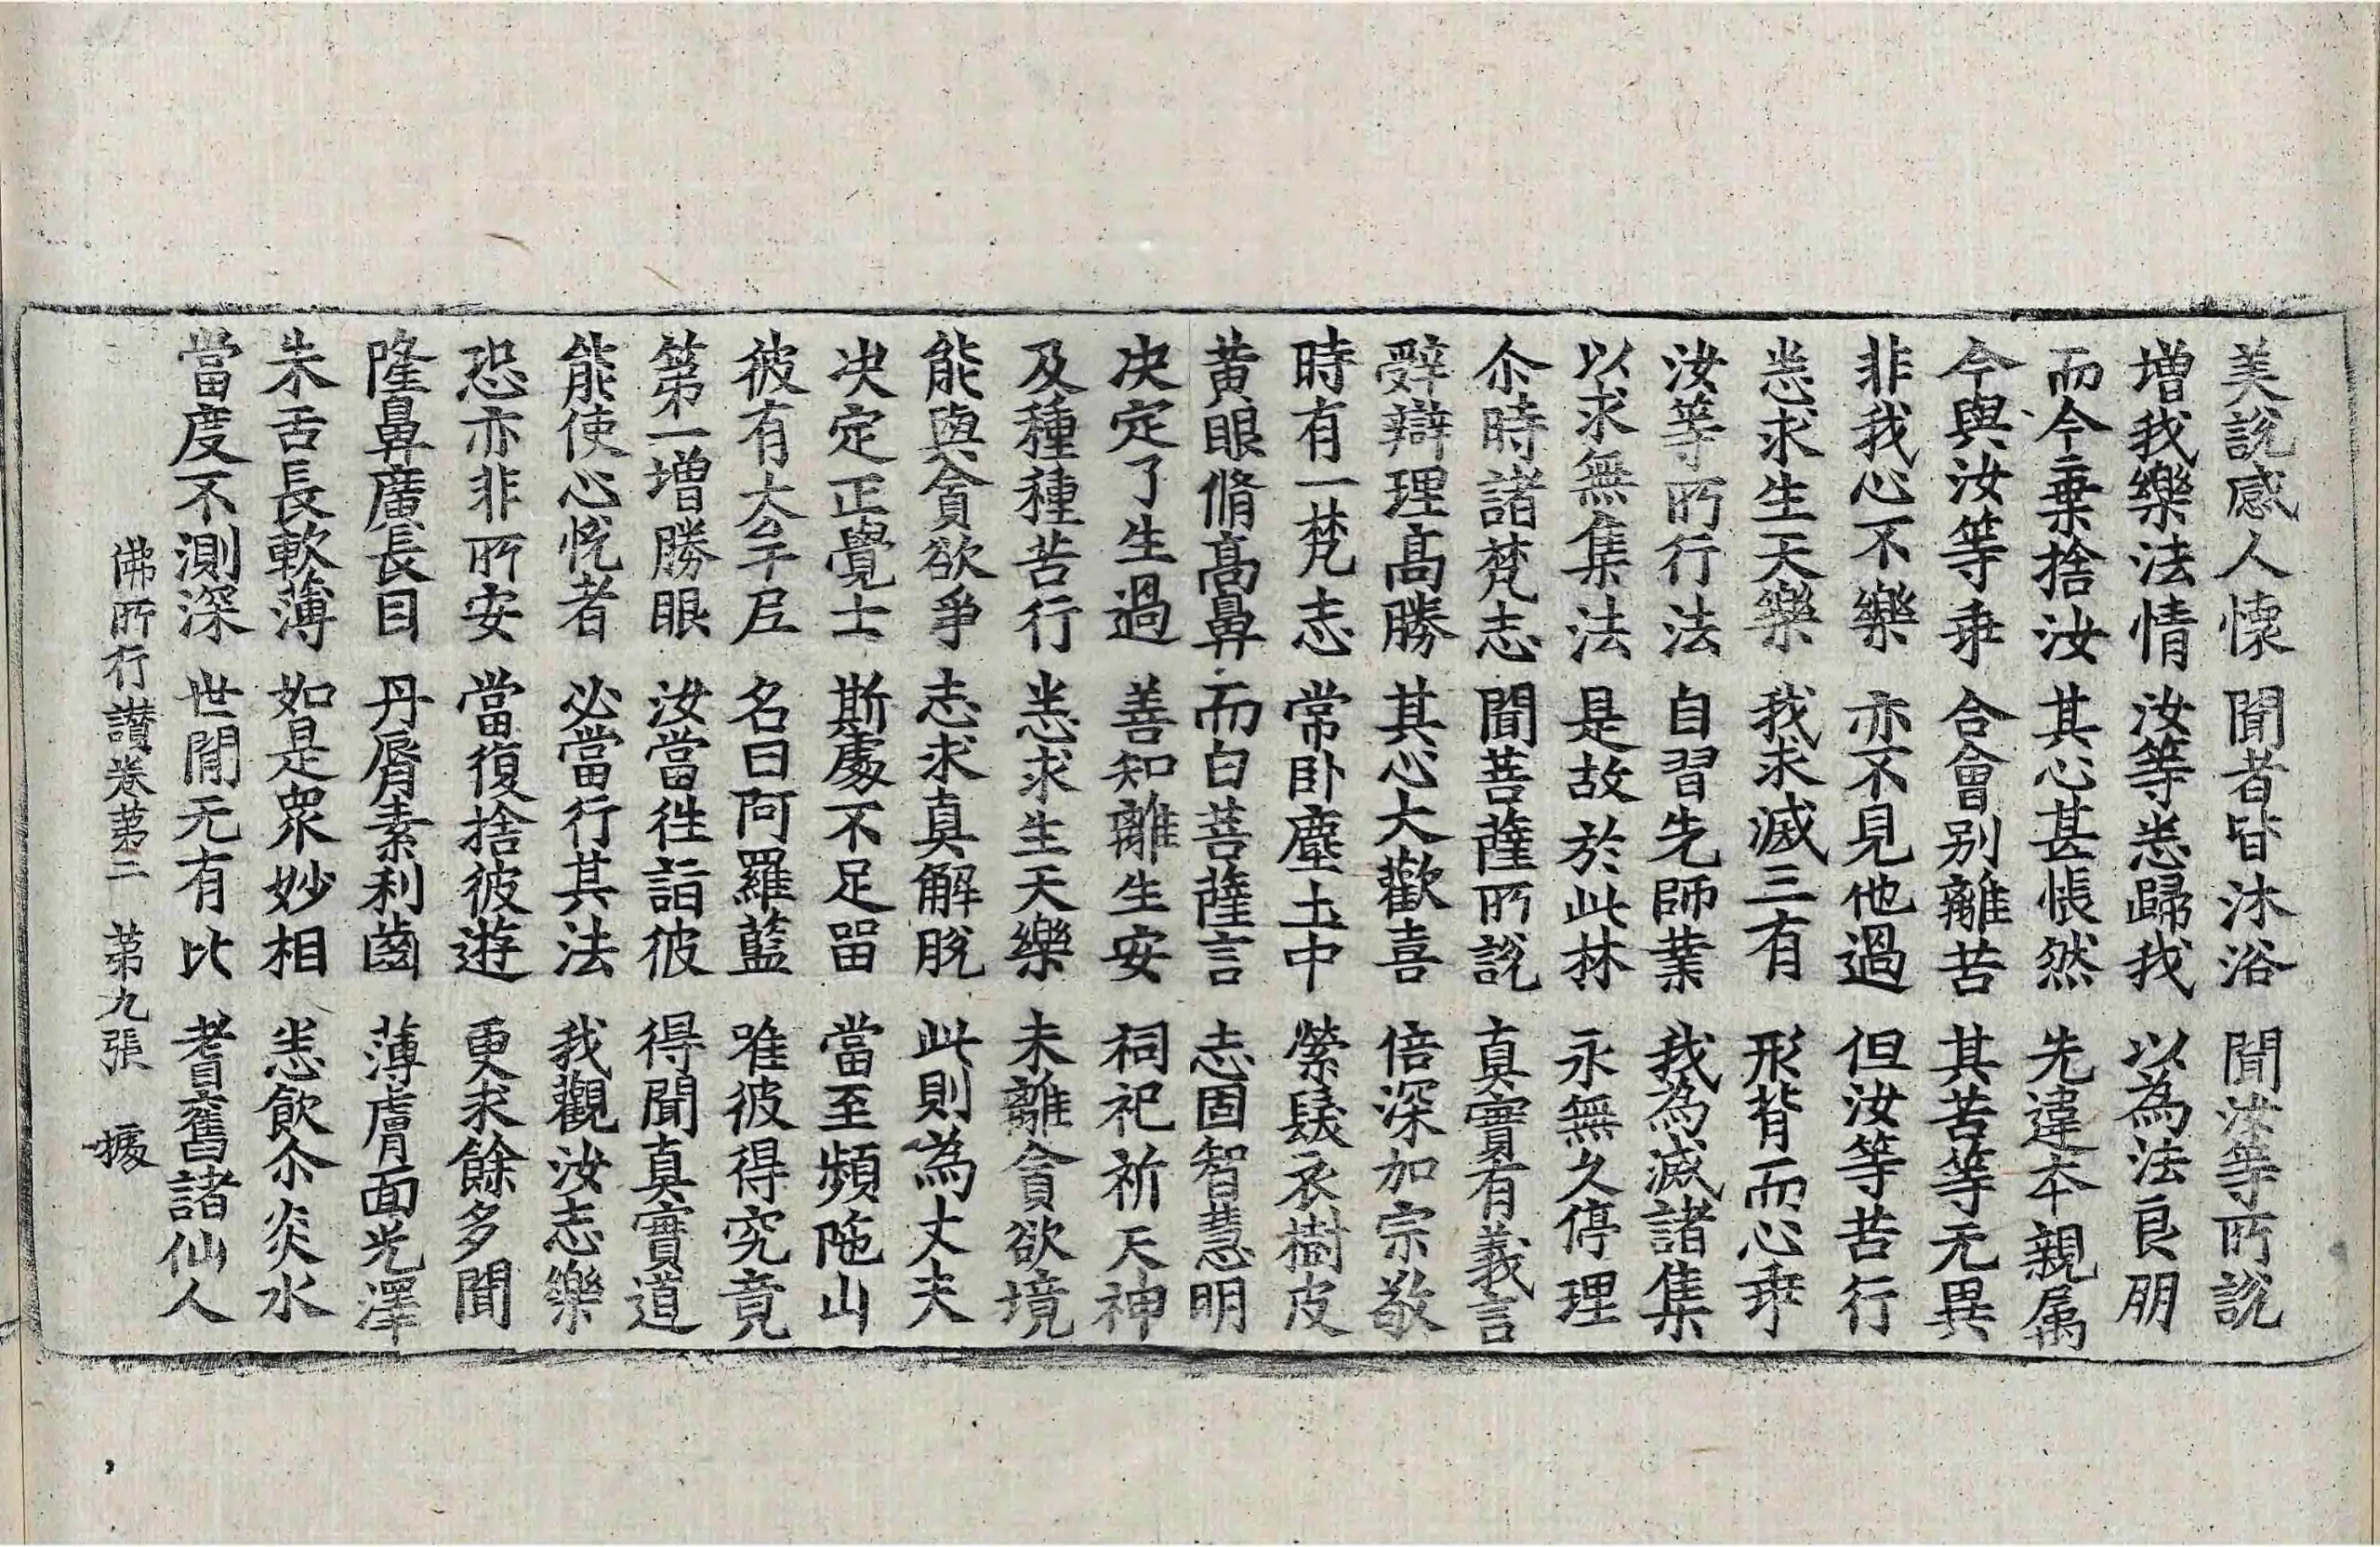 美說感人懷 聞者皆沐浴 聞汝等所說
增我樂法情 汝等悉歸我 以為法良朋
而今棄捨汝 其心甚悵然 先違本親属
今與汝等乖 合會别離苦 其苦等无異
非我心不樂 亦不見他過 但汝等苦行
悉求生天樂 我求滅三有 形背而心乖
汝等所行法 自習先師業 我為滅諸集
以求無集法 是故於此林 永無久停理
尒時諸梵志 聞菩薩所說 真實有義言
辭辯理高勝 其心大歡喜 倍深加宗敬
時有一梵志 常卧塵土中 縈髮衣樹皮
黄眼脩高鼻 而白菩薩言 志固智慧明
决定了生過 善知離生安 祠祀祈天神
及種種苦行 悉求生天樂 未離貪欲境
能與貪欲爭 志求真解脫 此則為丈夫
决定正覺士 斯處不足留 當至頻陁山
彼有大牟尼 名曰阿羅藍 唯彼得究竟
第一增勝眼 汝當往詣彼 得聞真實道
能使心悅者 必當行其法 我觀汝志樂
恐亦非所安 當復捨彼遊 更求餘多聞
隆鼻廣長目 丹脣素利齒 薄膚面光澤
朱舌長軟薄 如是衆妙相 悉飲尒炎水
當度不測深 世間无有比 耆舊諸仙人
佛所行讃卷第二 第九張